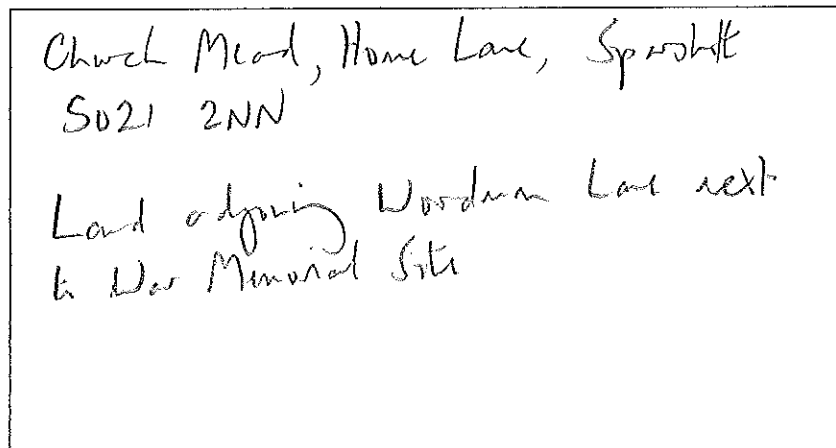 Church Mead, Home Lane, Sparsholt
SO21 2NN
Land adjoining Woodman Lane next
to War Memorial Site